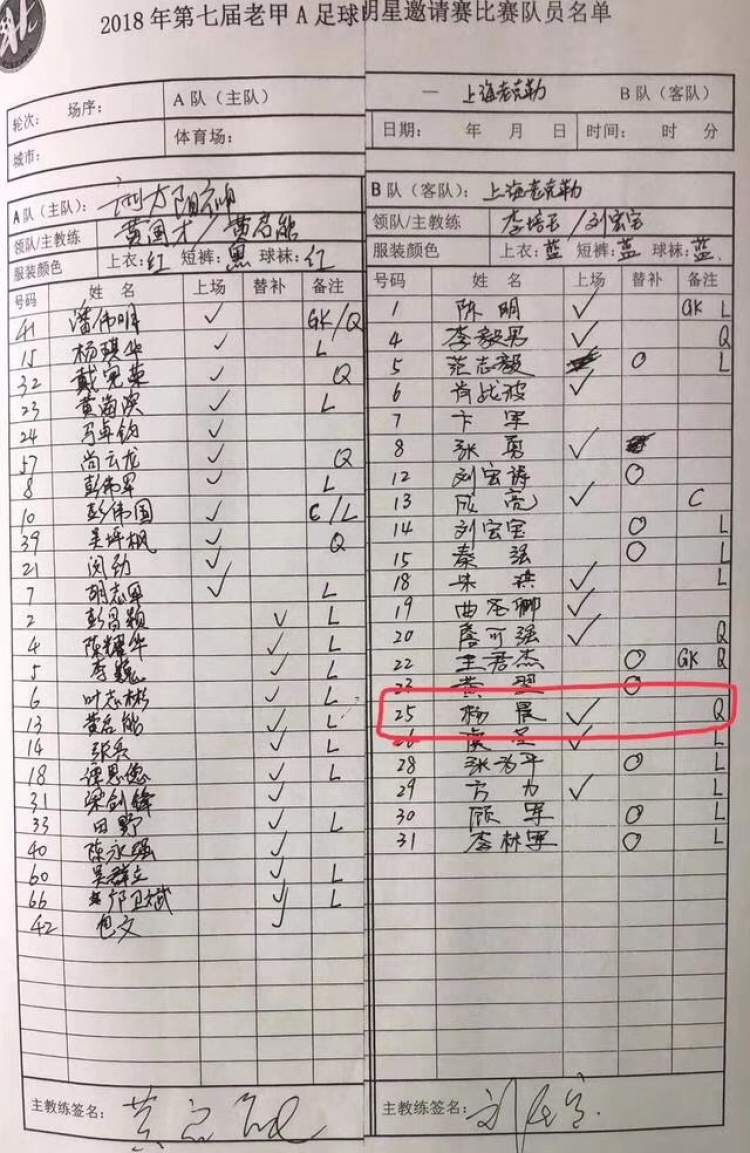 2018 年第七届老甲 A 足球明星邀请赛比赛队员名单
轮次： 场序： A 队（主队）
城市： 体育场：
A 队（主队）：
领队/主教练 黄国才/黄启能
服装颜色 上衣：红 短裤：黑 球袜：红
号码 姓 名 上场 替补 备注
41 潘伟明 ✓ GK/Q
15 杨琪华 ✓ L
32 戴宪荣 ✓ Q
23 黄海滨 ✓ L
24 马卓钧 ✓
57 尚云龙 ✓ Q
8 彭伟军 ✓ L
10 彭伟国 ✓ C/L
39 吴坪枫 ✓ Q
21 闵劲 ✓
7 胡志军 ✓ L
2 彭昌颖 ✓ L
4 陈耀华 ✓ L
5 李巍 ✓ L
6 叶志彬 ✓ L
13 黄启能 ✓ L
14 张兵 ✓ L
18 谭恩德 ✓ L
31 梁剑锋 ✓
33 田野 ✓ L
40 陈永强 ✓
60 吴群立 ✓ L
66 邝卫斌 ✓ L
42 包文 ✓
主教练签名： 黄启能
一 上海老克勒 B 队（客队）
日期： 年 月 日 时间： 时 分
B 队（客队）：上海老克勒
领队/主教练 李培玉/刘宏宝
服装颜色 上衣：蓝 短裤：蓝 球袜：蓝
号码 姓 名 上场 替补 备注
1 陈明 ✓ GK L
4 李毅男 ✓ Q
5 范志毅 O L
6 肖战波 ✓
7 卞军
8 张勇 ✓
12 刘宏涛 O
13 成亮 ✓ C
14 刘宏宝 O L
15 秦强 O L
18 朱琪 ✓ L
19 曲圣卿 ✓
20 詹可强 ✓ Q
22 王君杰 O GK Q
23 黄翌 O
25 杨晨 ✓ Q
26 虞圣 ✓ L
28 张为平 O L
29 方力 ✓ L
30 顾军 O L
31 李林军 O L
主教练签名：